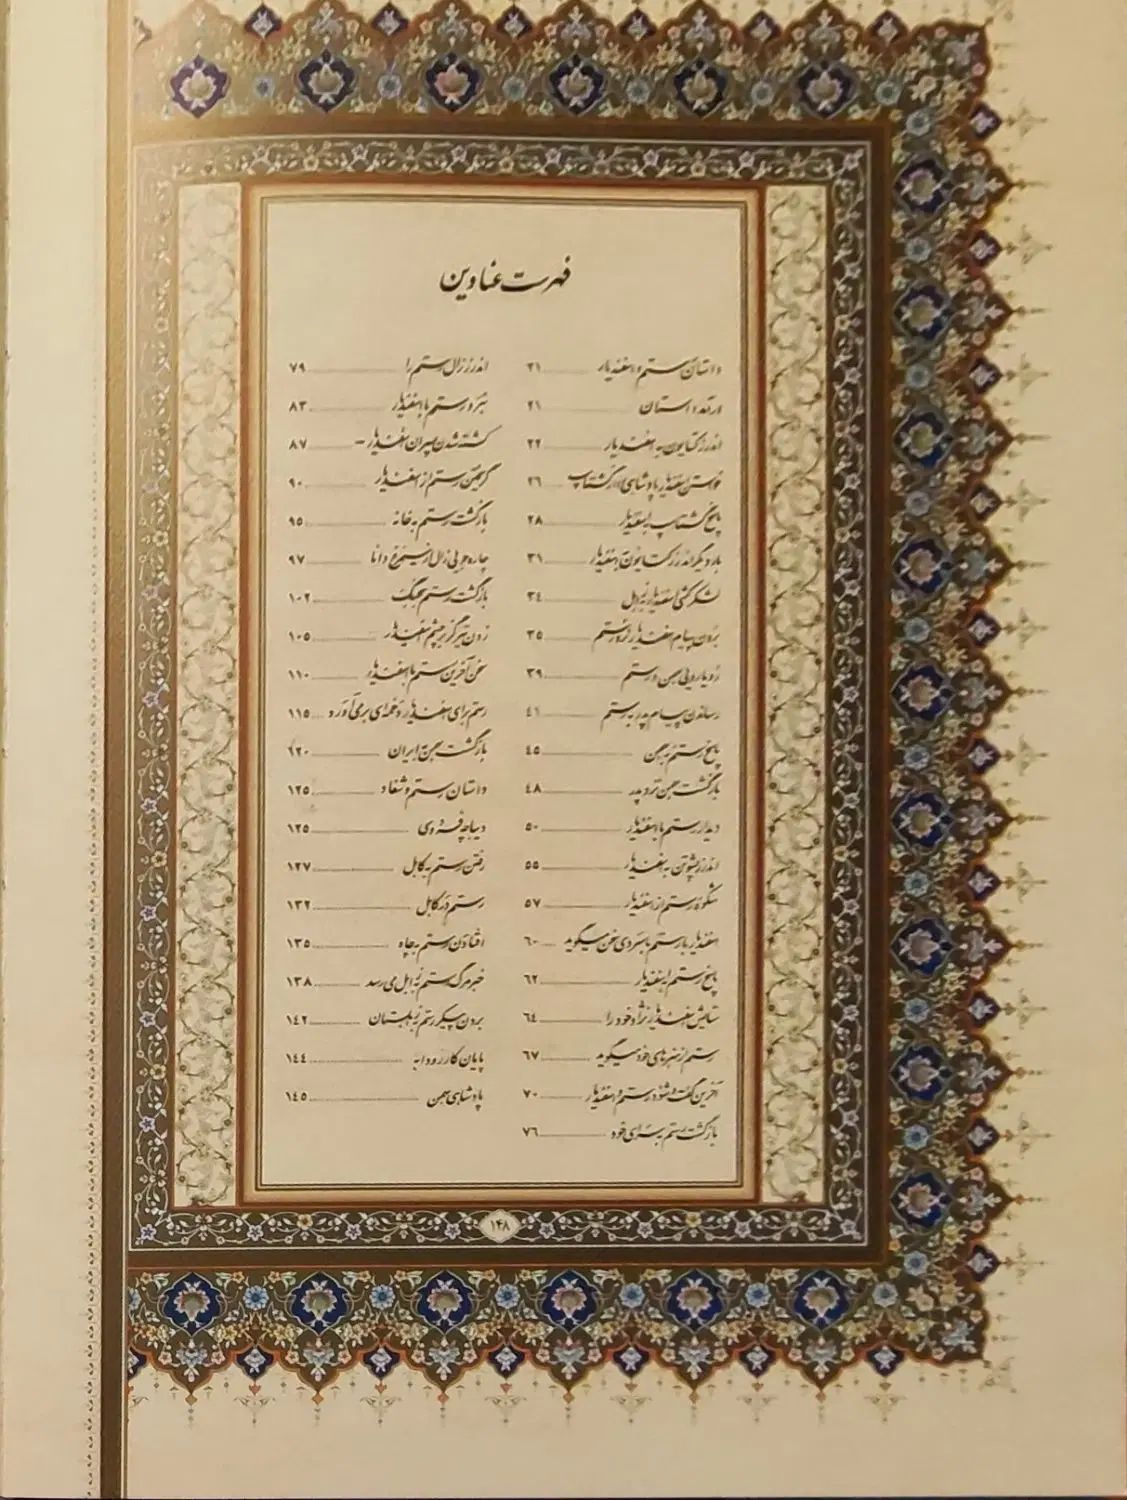 فهرست عناوین
داستان رستم و اسفندیار ۲۱
درآمد داستان ۲۱
اندرز کتایون به اسفندیار ۲۲
خواستن اسفندیار پادشاهی از گشتاسپ ۲۶
پاسخ گشتاسپ به اسفندیار ۲۸
بار دیگر اندرز کتایون به اسفندیار ۳۱
لشکرکشی اسفندیار به زابل ۳٤
بردن پیام اسفندیار نزد رستم ۳۵
رویارویی بهمن و رستم ۳۹
رساندن پیام پدر به رستم ٤۱
پاسخ رستم به بهمن ٤۵
بازگشت بهمن نزد پدر ٤۸
دیدار رستم با اسفندیار ۵۰
اندرز پشوتن به اسفندیار ۵۵
شکوه رستم از اسفندیار ۵۷
اسفندیار با رستم با سردی سخن میگوید ۶۰
پاسخ رستم به اسفندیار ۶۲
ستایش اسفندیار نژاد خود را ۶٤
رستم از هنرهای خود میگوید ۶۷
آخرین گفت و شنود رستم و اسفندیار ۷۰
بازگشت رستم به سرای خود ۷۶
اندرز زال رستم را ۷۹
نبرد رستم با اسفندیار ۸۳
کشته شدن پسران اسفندیار ۸۷
گریختن رستم از اسفندیار ۹۰
بازگشت رستم به خانه ۹۵
چاره جویی زال از سیمرغ دانا ۹۷
بازگشت رستم به جنگ ۱۰۲
زدن تیر گز بر چشم اسفندیار ۱۰۵
سخن آخرین رستم با اسفندیار ۱۱۰
رستم برای اسفندیار دخمه‌ای برمی آورد ۱۱۵
بازگشت بهمن به ایران ۱۲۰
داستان رستم و شغاد ۱۲۵
دیباچه فردوسی ۱۲۵
رفتن رستم به کابل ۱۲۷
رستم در کابل ۱۳۲
افتادن رستم به چاه ۱۳۵
خبر مرگ رستم به زابل می رسد ۱۳۸
بردن پیکر رستم به زابلستان ۱٤۲
پایان کار رودابه ۱٤٤
پادشاهی بهمن ۱٤۵
۱۴۸